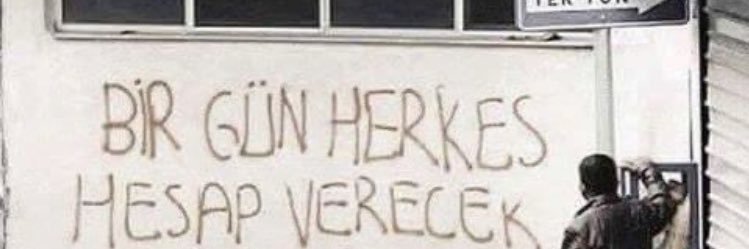 TEK YÖN
BİR GÜN HERKES
HESAP VERECEK